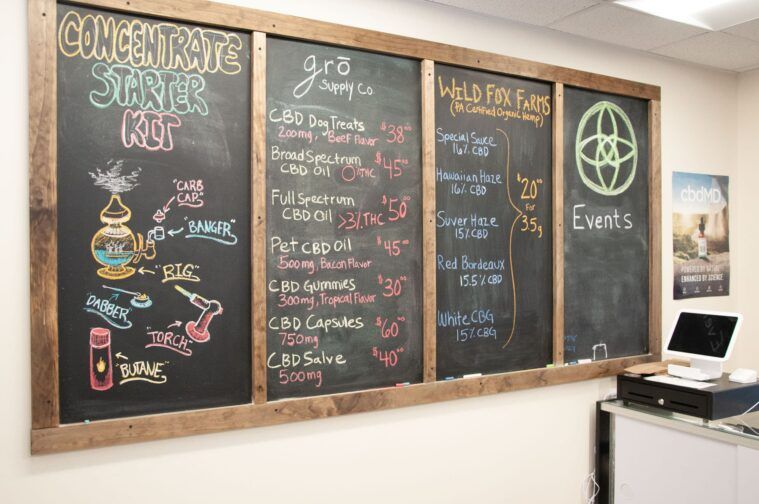 CONCENTRATE
STARTER
KIT
"CARB
CAP"
"BANGER"
"RIG"
"DABBER"
"TORCH"
"BUTANE"
grō
Supply Co.
CBD Dog Treats $38⁰⁰
200mg, Beef Flavor
Broad Spectrum $45⁰⁰
CBD Oil 0%THC
Full Spectrum $50⁰⁰
CBD Oil >3% THC
Pet CBD Oil $45⁰⁰
500mg, Bacon Flavor
CBD Gummies $30⁰⁰
300mg, Tropical Flavor
CBD Capsules $60⁰⁰
750mg
CBD Salve $40⁰⁰
500mg
WILD FOX FARMS
(PA Certified Organic Hemp)
Special Sauce
16% CBD
Hawaiian Haze
16% CBD
Suver Haze
15% CBD
Red Bordeaux
15.5% CBD
White CBG
15% CBG
$20⁰⁰
For
3.5g
Events
cbdMD
POWERED BY NATURE.
ENHANCED BY SCIENCE.